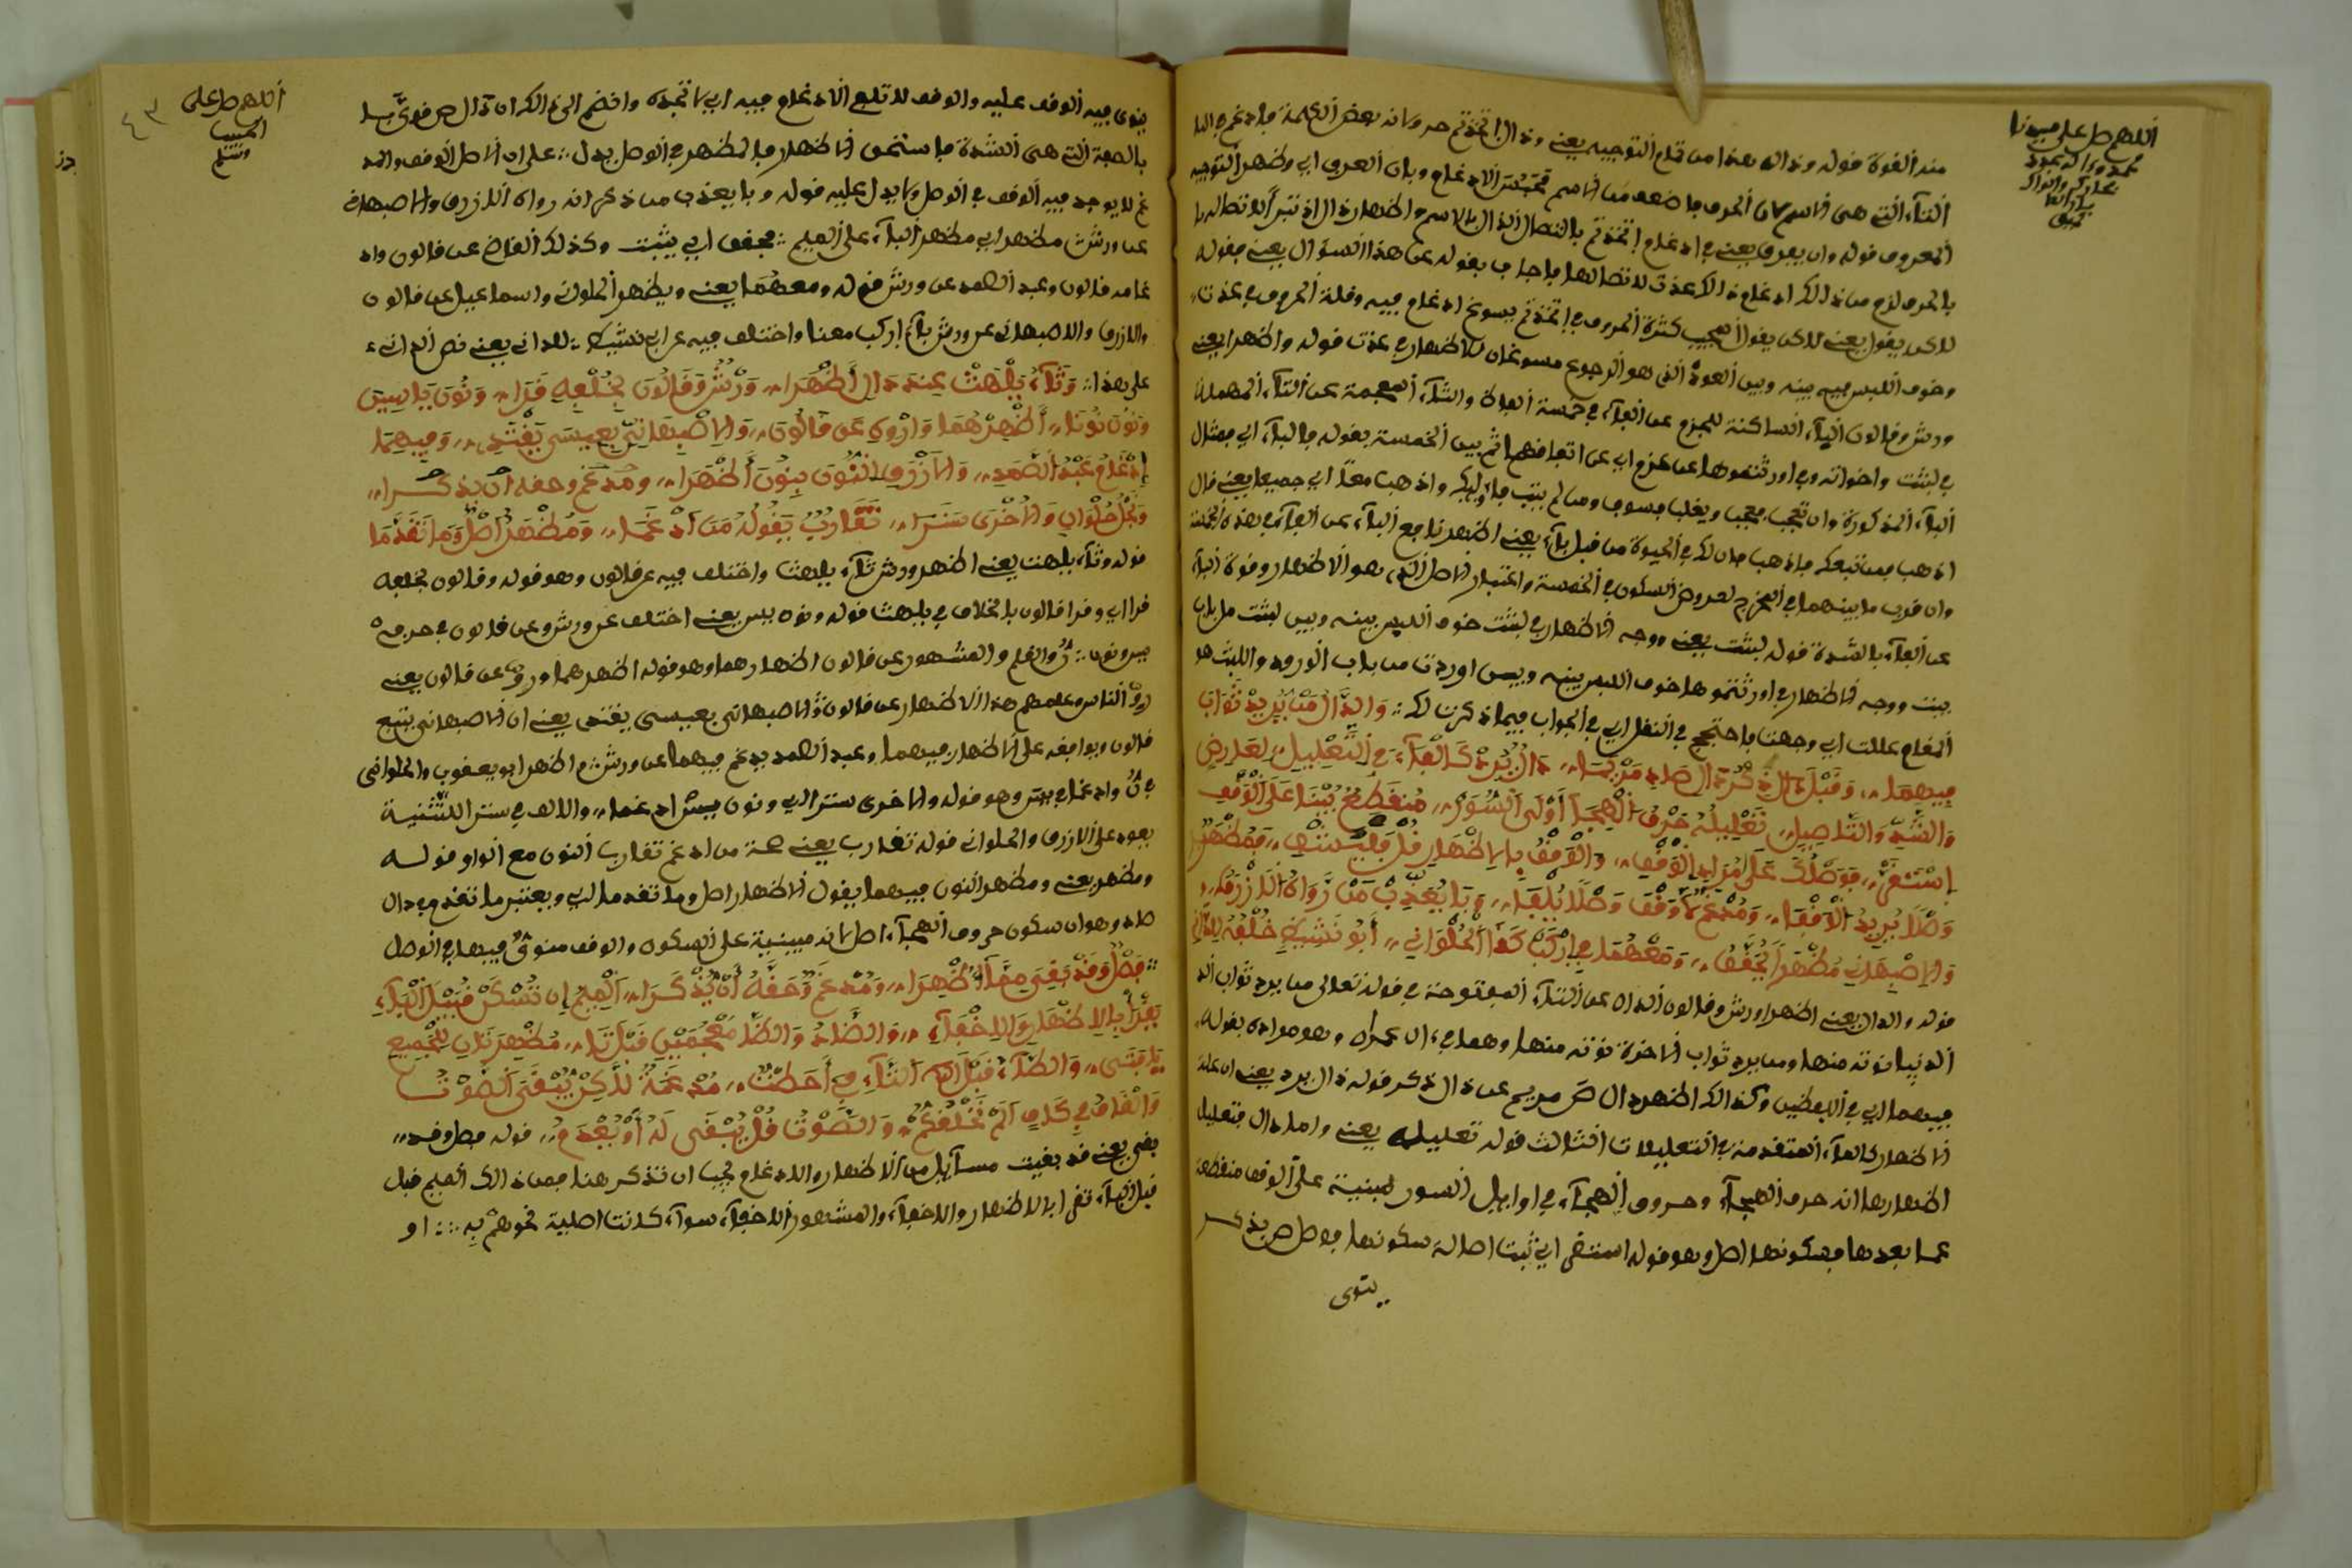 اللهم صل على سيدنا
محمد وءاله
منه القوة قوله وذال هذا من تمام التوجيه يعني وذال اتخذتم حروفه بعض الكلمة فادغم في التاء
التاء التي هي الاسم لان الحرف ما ضعف من الاسم فحسن الادغام وبان العرف اي وظهر التوجيه
المعروف قوله وان يعرف يعني في ادغام اتخذتم باتصال الذال بالاسم واظهار ذال اذ تبرأ لاتصالها
بالحرف لزم من ذالك ادغام ذالك عذت لاتصالها فاجاب بقوله عن هذا السؤال يعني بقوله
لاكن يقول يعني لاكن يقول المجيب كثرة الحروف في اتخذتم يسوغ ادغام فيه وقلة الحروف في عذت
وخوف اللبس فيه بينه وبين العود الذي هو الرجوع مسوغان للاظهار في عذت قوله واظهرا يعني
ورش وقالون الباء الساكنة للجزم عن الفاء في خمسة الفاظ والثاء المعجمة عن التاء المهملة
في لبثت واخواته وفي اورثتموها عن عزم اي عن اتفاقهما ثم بين الخمسة بقوله فالباء اي مثال
الباء المذكورة وان تعجب فعجب ويغلب فسوف ومن لم يتب فاولئك واذهب معا اي جميعا يعني قال
اذهب فمن تبعك فاذهب فان لك في الحيوة من قبل باء يعني اظهرنا مع الباء عن الفاء في هذه الخمسة
وان قرب ما بينهما في المخرج لعروض السكون في الخمسة واعتبار الاصل الذي هو الاظهار وقوة الباء
عن الفاء بالشدة قوله لبثت يعني ووجه الاظهار في لبثت خوف اللبس بينه وبين لبثت من باب
بيت ووجه الاظهار في اورثتموها خوف اللبس بينه وبين اوردت من باب الورود واللبث هو
المقام عللت اي وجهت فاحتجج في النقل اي في الجواب فيما ذكرت لك والدال من يرد ثواب
فيهما وقبل ذال ذكر دال صاد مريما دال يرد كالفاء في التعليل لعارض
والشد والتاصيل تعليله حرف الهجا اولى السور منقطع بنيا على الوقف
استقى فوصلك على مراد الوقف والوقف بالاظهار قل فليستقى فمظهر
وصلا يريد الوقفا ومدغم لا وقف وصلا يلفا وبا يعذب من رواه الازرق
والاصبهاني مظهرا يحقق ومعهما في اركب كذا الحلواني ابو نشيط خلفه للداني
قوله والدال يعني اظهرا ورش وقالون الدال عن الثاء المفتوحة في قوله تعالى من يرد ثواب الد
الدنيا نوته منها ومن يرد ثواب الاخرة نوته منها وهما في ءال عمران وهو مراده بقوله
فيهما اي في اللفظين وكذالك اظهر دال ص مريم عن ذال ذكر قوله دال يرد يعني ان علة
الاظهار كالفاء المتقدمة في التعليلات الثالث قوله تعليله يعني واما دال فتعليل
اظهارها انه حرف الهجاء وحروف الهجاء في اوايل السور مبنية على الوقف منقطعة
عما بعدها فسكونها اصل وهو قوله استقى اي ثبت اصالة سكونها فوصل ص بذكر
ينوى
٤٣
اللهم صل على
الحبيب
وسلم
ينوى فيه الوقف عليه والوقف لا تلفي الادغام فيه اي لا تجده وانضم الى ذالك ان دال ص قوي
بالصفة التي هي الشدة فاستحق الاظهار فالمظهر في الوصل يدل على ان الاصل الوقف والمد
غم لا يوجد فيه الوقف في الوصل ولا يدل عليه قوله وبا يعذب من ذكر انه رواه الازرق والاصبهاني
عن ورش مظهر اي مظهر الباء على الميم يحقق اي يثبت وكذلك القاضي عن قالون واد
غامه قالون وعبد الصمد عن ورش قوله ومعهما يعني ويظهر الحلواني واسماعيل عن قالون
والازرق والاصبهاني عن ورش باء اركب معنا واختلف فيه عن ابي نشيط للداني يعني نص الداني
على هذا وثاء يلهث عند ذال اظهرا ورش وقالون بخلفه قرا ونون ياسين
ونون نونا اظهرهما وارو عن قالونا والاصبهاني بعيسى يقتدي وفيهما
ادغام عبد الصمد والازرق النون بنون اظهرا ومدغم وحقه ان يذكرا
ونجل حلواني والاخرى سترا تقارب يقول من ادغما ومظهر اصل وما تقدما
قوله وثاء يلهث يعني اظهر ورش ثاء يلهث واختلف فيه عن قالون وهو قوله وقالون بخلفه
قرا اي وقرا قالون بالخلاف في يلهث قوله ونون يس يعني اختلف عن ورش وعن قالون في حرفي
يس ونون ن والقلم والمشهور عن قالون اظهارهما وهو قوله اظهرهما وارو عن قالون يعني
ارو الناس وعلمهم هذا الاظهار عن قالون والاصبهاني بعيسى يقتدي يعني ان الاصبهاني يتبع
قالون ويوافقه على الاظهار فيهما وعبد الصمد يدغم فيهما عن ورش واظهر ابو يعقوب والحلواني
في ن وادغما في يس وهو قوله والاخرى سترا اي ونون يس ادغما والالف في سترا للتثنية
يعود على الازرق والحلواني قوله تقارب يعني حجة من ادغم تقارب النون مع الواو قوله
ومظهر يعني ومظهر النون فيهما يقول الاظهار اصل وما تقدما اي ويعتبر ما تقدم في دال
صاد وهو ان سكون حروف الهجاء اصل لانه مبنية على السكون والوقف منوي فيها في الوصل
فصل وقد بقي مما اظهرا ومدغم وحقه ان يذكرا الميم ان تسكن قبيل الباء
تقرا بالاظهار والاخفاء والضاد والظا معجمين قبل تا مظهرتان للجميع
يا فتى والطاء قبل التاء في احطت مدغمة لاكن يبقى الصوت
والقاف في كاف الم نخلقكم والصوت قل يبقى له او يعدم قوله فصل وقد
بقي يعني قد بقيت مسايل من الاظهار والادغام يجب ان تذكر هنا فمن ذالك الميم قبل
قبل الباء تقرا بالاظهار والاخفاء والمشهور الاخفاء سواء كانت اصلية نحو هم به او